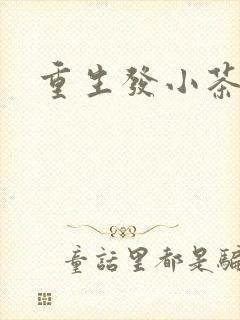 重生發小茶
童話里都是騙